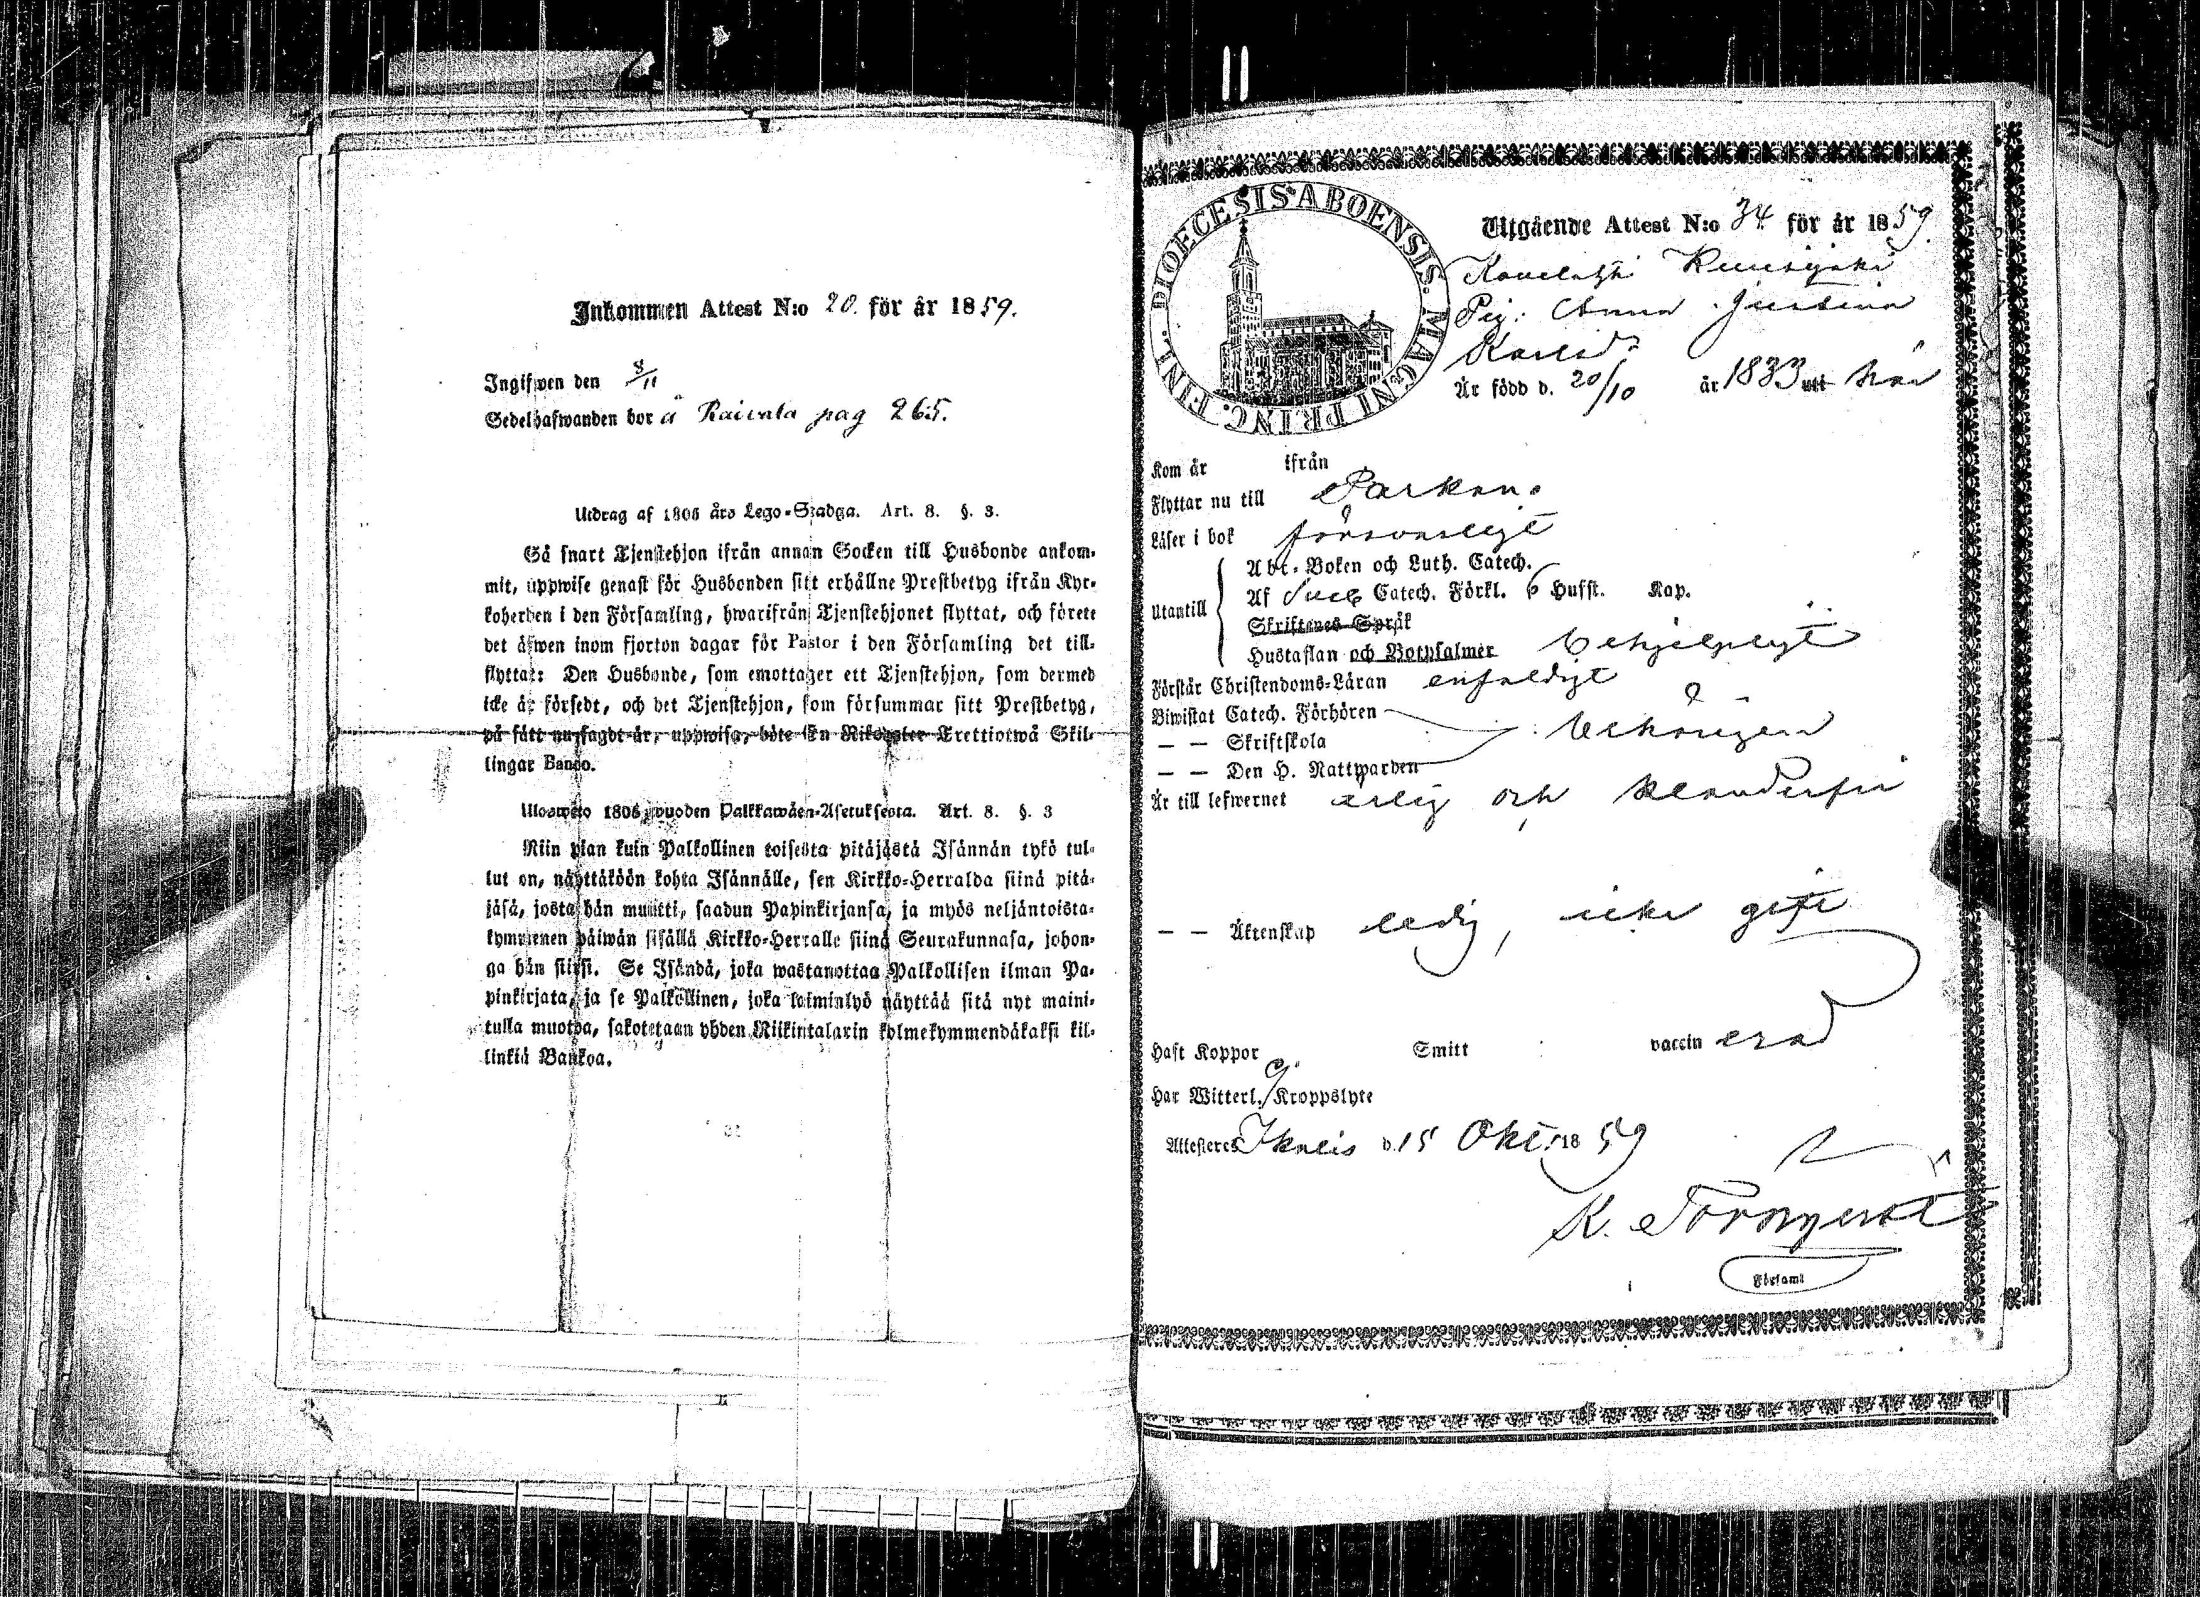 Inkommen Attest N:o 20. för år 1859.
Ingifwen den 8/11
Sedelhafwanden bor å Raivala pag 265.
Utdrag af 1805 års Lego-Stadga. Art. 8. §. 3.
Så snart Tjenstehjon ifrån annan Socken till Husbonde ankom-
mit, uppwise genast för Husbonden sitt erhållne Prestbetyg ifrån Kyr-
koherden i den Församling, hwarifrån Tjenstehjonet flyttat, och förete
det äfwen inom fjorton dagar för Pastor i den Församling det till-
flyttat: Den Husbonde, som emottager ett Tjenstehjon, som dermed
icke är försedt, och det Tjenstehjon, som försummar sitt Prestbetyg,
på sätt nu sagdt är, uppwisa, böte En Riksdaler Trettiotwå Skil-
lingar Banco.
Ulosweto 1805 wuoden Palkkawäen-Asetuksesta. Art. 8. §. 3
Niin pian kuin Palkollinen toisesta pitäjästä Isännän tykö tul-
lut on, näyttäköön kohta Isännälle, sen Kirkko-Herralda siinä pitä-
jäsä, josta hän muutti, saadun Papinkirjansa, ja myös neljäntoista-
kymmenen päiwän sisällä Kirkko-Herralle siinä Seurakunnasa, johon-
ga hän siirsi. Se Isändä, joka wastanottaa Palkollisen ilman Pa-
pinkirjata, ja se Palkollinen, joka laiminlyö näyttää sitä nyt maini-
tulla muotoa, sakotetaan yhden Riikintalarin kolmekymmendäkaksi kil-
linkiä Bankoa.
DIOECESIS ABOENSIS. MAGNI PRINC. FINL.
Utgående Attest N:o 34 för år 1859.
Pig. Anna Justina
Är född d. 20/10 år 1833 utt här
Kom år ifrån
Flyttar nu till Parkano
Läser i bok försvarligt
Utantill
Abc-Boken och Luth. Catech.
Af Sveb Catech. Förkl. 6 Hufst. Kap.
Skriftenes Språk
Hustaflan och Botpsalmer behjelpligt
Förstår Christendoms-Läran enfaldigt
Biwistat Catech. Förhören
— — Skriftskola behörigen
— — Den H. Nattwarden
Är till lefwernet ärlig och klanderfri
— — Äktenskap ledig, icke gift
Haft Koppor Smitt vaccinerad
Har Witterl. ej Kroppslyte
Attesteres Ikalis d. 15 Okt. 1859
K. Törnqvist
Församl